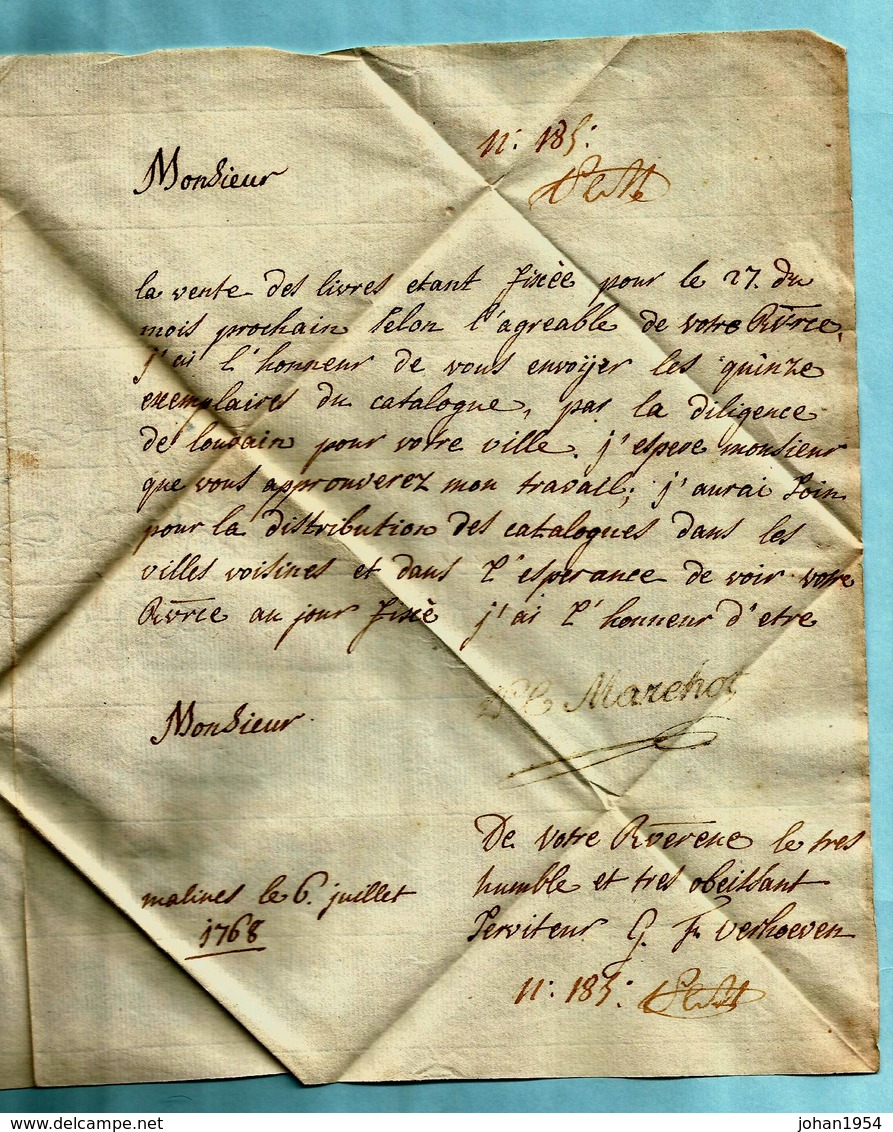 n: 185:
Monsieur
la vente des livres etant fixèe pour le 27. du
mois prochain selon l'agreable de votre Rv̄rce,
j'ai l'honneur de vous envoÿer les quinze
exemplaires du catalogue, par la diligence
de louvain pour votre ville. j'espere monsieur
que vous approuverez mon travail; j'aurai soin
pour la distribution des catalogues dans les
villes voisines et dans l'esperance de voir votre
Rv̄rce au jour fixè j'ai l'honneur d'etre
Marchot
Monsieur
De votre Rv̄erene le tres
humble et tres obeissant
serviteur G. F. verhoeven
malines le 6. juillet
1768
n: 185:
Delcampe.net
johan1954